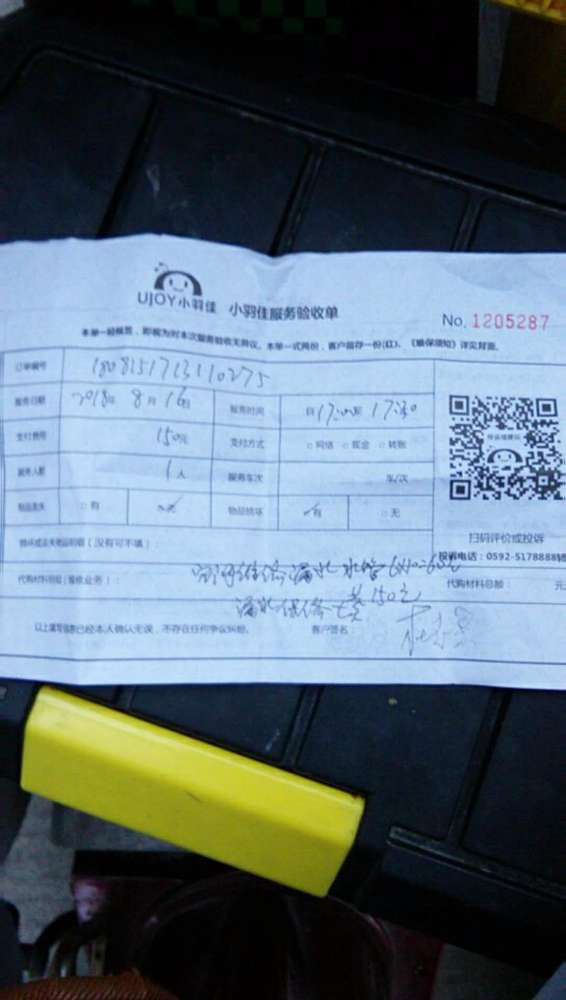 UJOY小羽佳 小羽佳服务验收单
No. 1205287
本单一经核签，即视为对本次服务验收无异议。本单一式两份，客户留存一份(红)，《维保须知》详见背面。
订单编号
服务日期 2018年 8月 16日 服务时间 17:00至 17:30
支付费用 150元 支付方式 □网络 □现金 □转账
服务人数 1人 服务车次 车/次
物品丢失 □有 □无 物品损坏 □有 □无
损坏或丢失物品明细（没有可不填）：
扫码评价或投诉
投诉电话：0592-5178888转
代购材料明细（维修业务）： 漏水 水管6×10=60元 代购材料总额： 元
150元
以上填写信息已经本人确认无误，不存在任何争议纠纷。 客户签名：